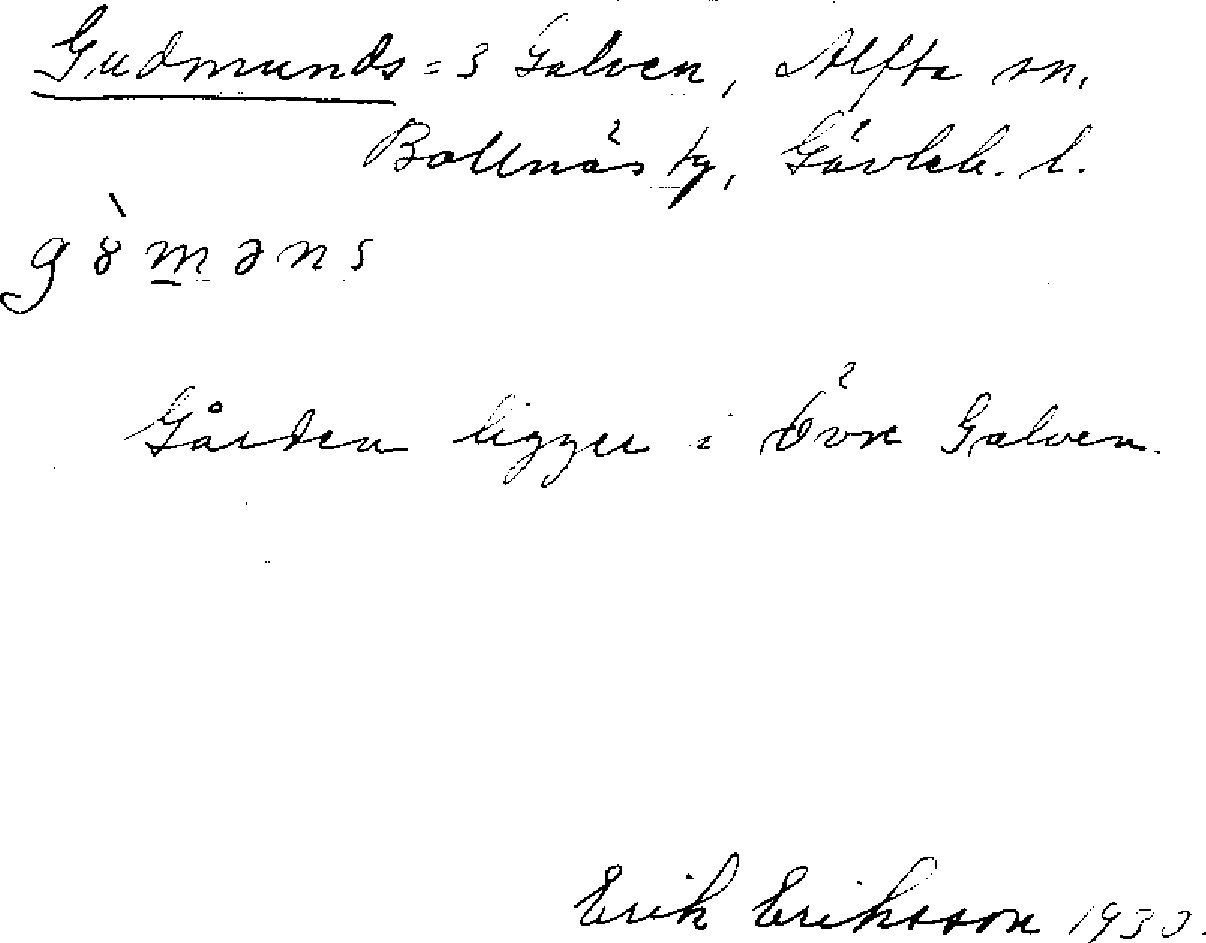 Gudmunds = 3 Galven, Alfta sn.
Bollnäs tg, Gävleb. l.
gò̀m̲əns
Gården ligger i Övre Galven.
Erik Eriksson 1930.